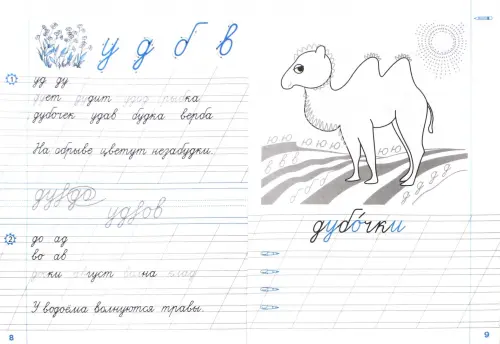 у д б в
1 уд ду
дует дудит удид рыбка
дубочек удав будка верба
На обрыве цветут незабудки.
2 до ад
во ав
доки август волна влад
У водоёма волнуются травы.
8
ю ю ю
в в в
ю ю ю
б б б
д д д д
дубо́чки
9